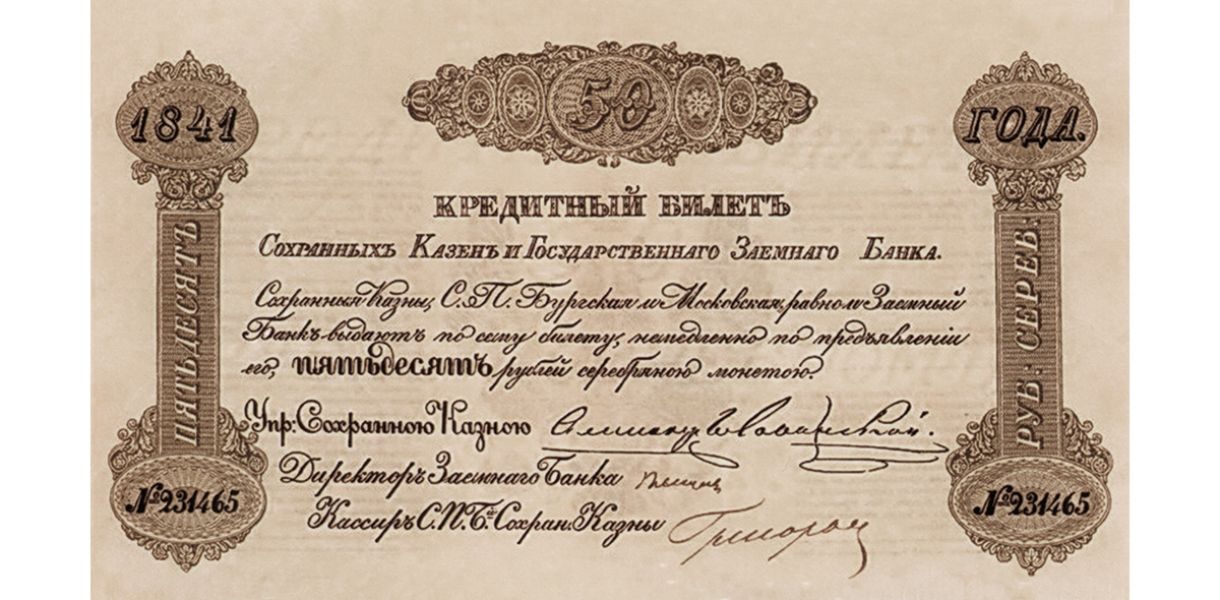 1841
50
ГОДА.
ПЯТЬДЕСЯТЪ
РУБ: СЕРЕБ:
КРЕДИТНЫЙ БИЛЕТЪ
Сохранныхъ Казенъ и Государственнаго Заемнаго Банка.
Сохранныя Казны, С.П.Бургская и Московская, равно и Заемный
Банкъ выдаютъ по сему билету, немедленно по предъявленіи
его, пятьдесятъ рублей серебряною монетою.
Упр: Сохранною Казною
Директоръ Заемнаго Банка
Кассиръ С.П.Б.й Сохран. Казны
№231465
№231465